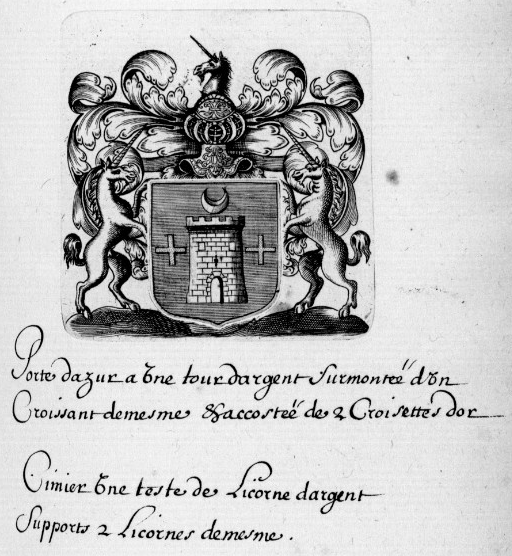 Porte dazur a vne tour dargent Surmonteé d'vn
Croissant demesme & accosteé de 2 Croisettes dor
Cimier vne teste de Licorne dargent
Supports 2 Licornes demesme.